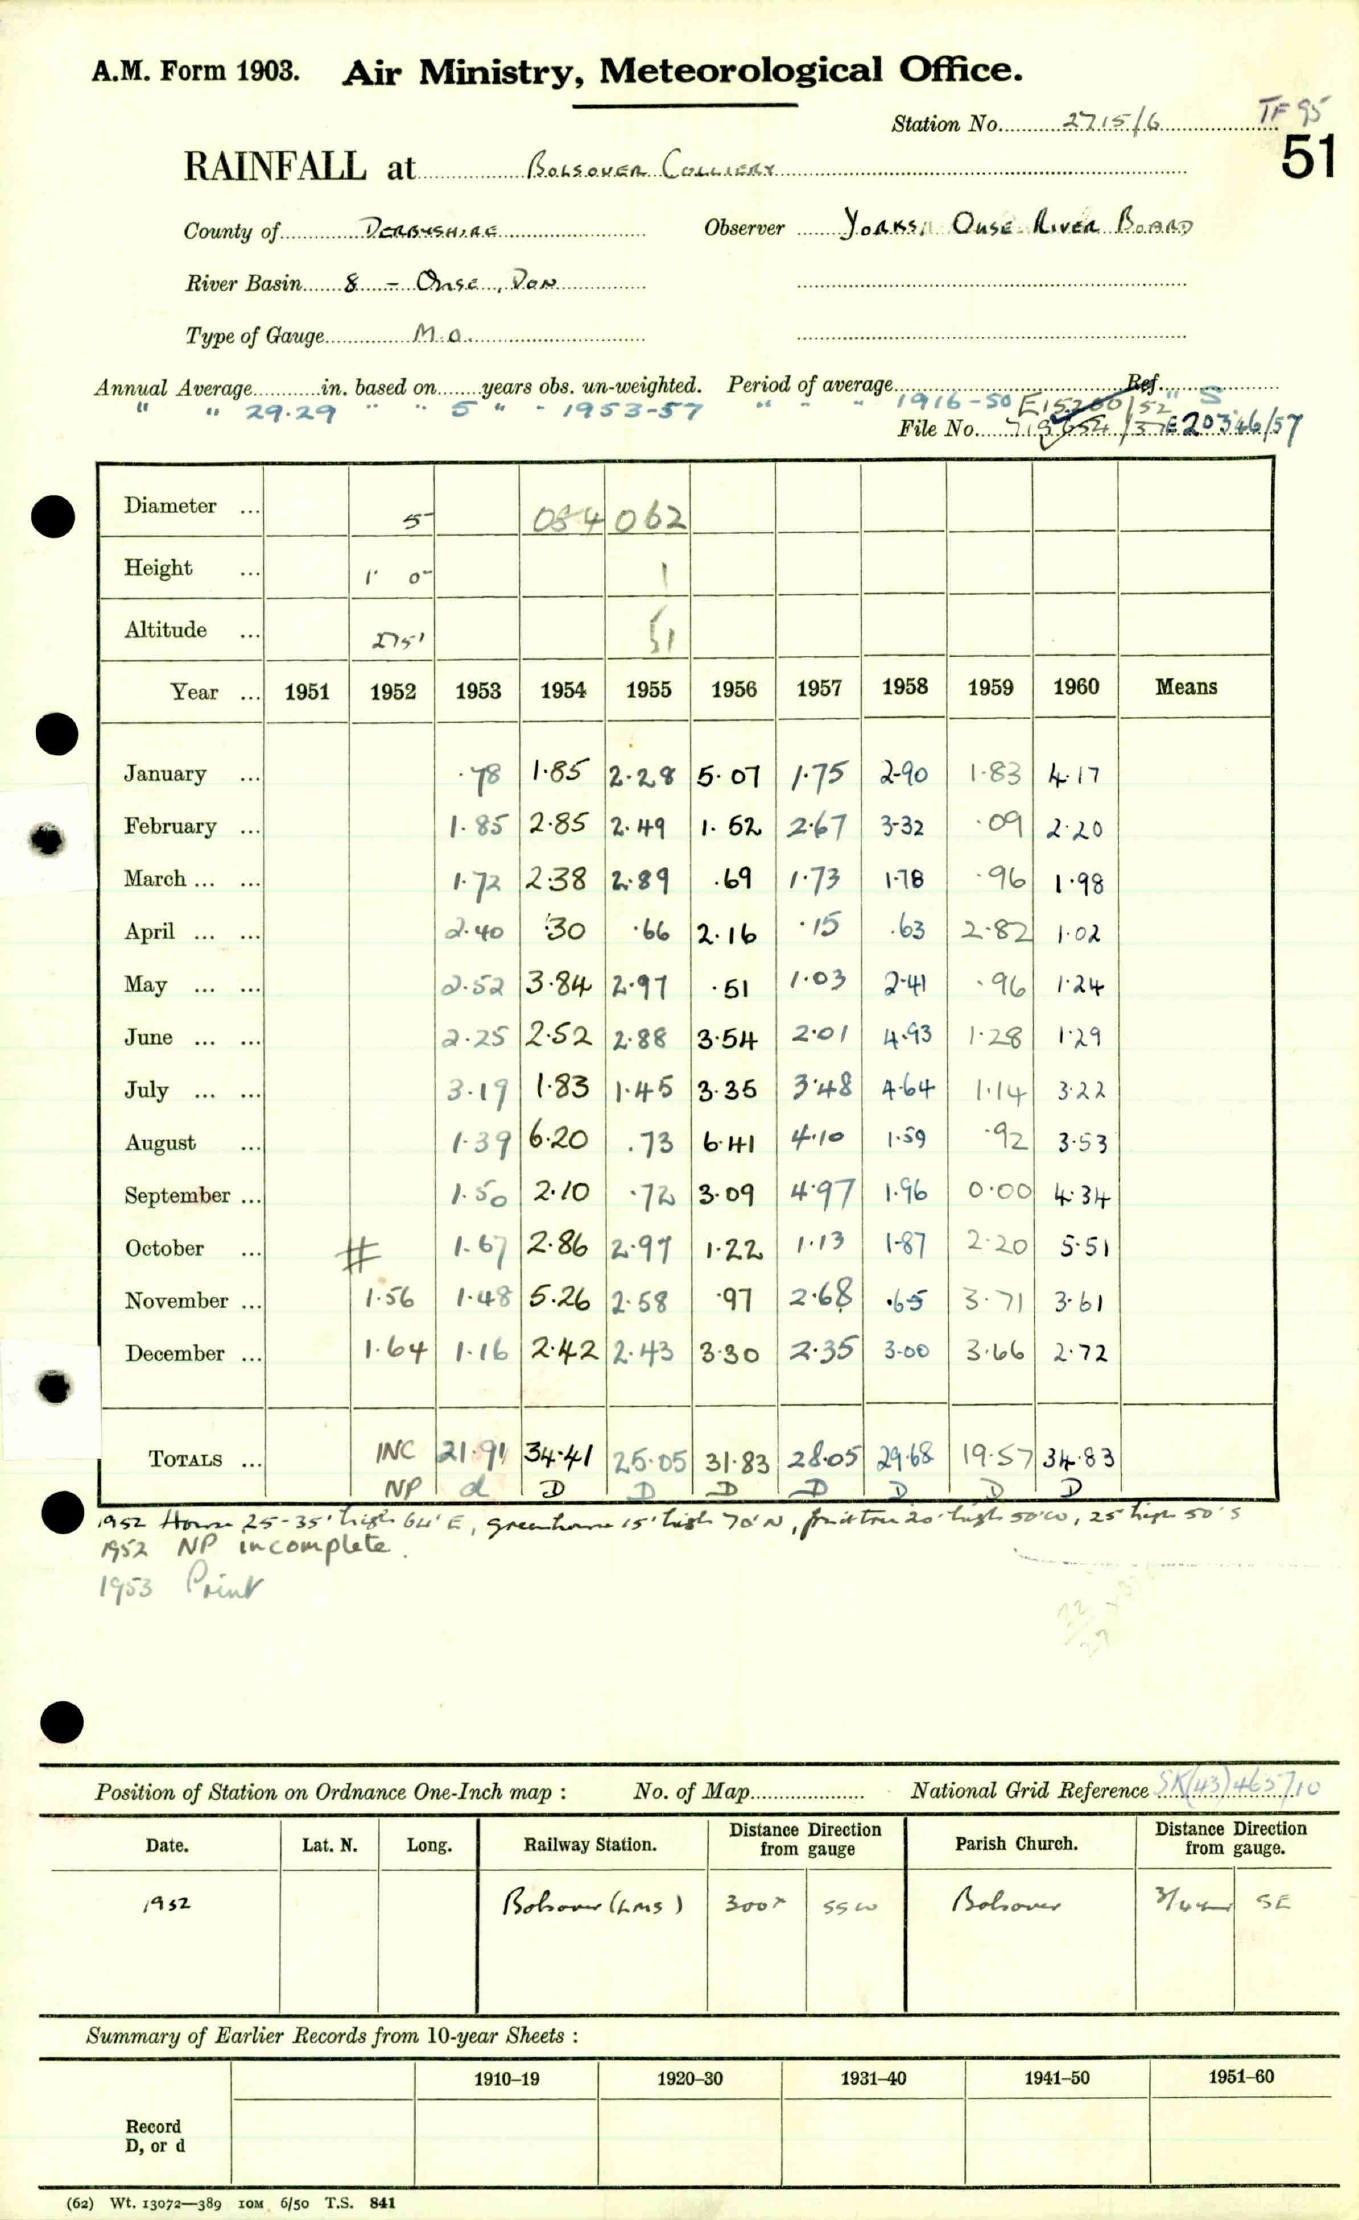 A.M. Form 1903. Air Ministry, Meteorological Office.
TF 95
Station No. 2715/6
51
RAINFALL at Bolsover Colliery
County of Derbyshire Observer Yorks. Ouse River Board
River Basin 8 - Ouse, Don
Type of Gauge M.O.
Annual Average in. based on years obs. un-weighted. Period of average Ref.
" " 29.29 " " 5 " - 1953-57 " " " 1916-50 E15200/52 " S
File No. E20346/57
Diameter ... 5 054 062
Height ... 1' 0" 1
Altitude ... 275' 51
Year ... 1951 1952 1953 1954 1955 1956 1957 1958 1959 1960 Means
January ... .78 1.85 2.28 5.07 1.75 2.90 1.83 4.17
February ... 1.85 2.85 2.49 1.52 2.67 3.32 .09 2.20
March ... ... 1.72 2.38 2.89 .69 1.73 1.78 .96 1.98
April ... ... 2.40 .30 .66 2.16 .15 .63 2.82 1.02
May ... ... 2.52 3.84 2.97 .51 1.03 2.41 .96 1.24
June ... ... 2.25 2.52 2.88 3.54 2.01 4.93 1.28 1.29
July ... ... 3.19 1.83 1.45 3.35 3.48 4.64 1.14 3.22
August ... 1.39 6.20 .73 6.41 4.10 1.59 .92 3.53
September ... 1.50 2.10 .72 3.09 4.97 1.96 0.00 4.34
October ... # 1.67 2.86 2.97 1.22 1.13 1.87 2.20 5.51
November ... 1.56 1.48 5.26 2.58 .97 2.68 .65 3.71 3.61
December ... 1.64 1.16 2.42 2.43 3.30 2.35 3.00 3.66 2.72
TOTALS ... INC 21.91 34.41 25.05 31.83 28.05 29.68 19.57 34.83
NP d D D D D D D D
1952 House 25-35' high 64' E, greenhouse 15' high 70' N, fruit tree 20' high 50' W, 25 high 50' S
1952 NP incomplete.
1953 Print
22
27
Position of Station on Ordnance One-Inch map : No. of Map National Grid Reference SK(43)465710
Date. Lat. N. Long. Railway Station. Distance from gauge Direction Parish Church. Distance Direction from gauge.
1952 Bolsover (LMS) 300x SSW Bolsover 3/4 SE
Summary of Earlier Records from 10-year Sheets :
1910–19 1920–30 1931–40 1941–50 1951–60
Record
D, or d
(62) Wt. 13072—389 10M 6/50 T.S. 841